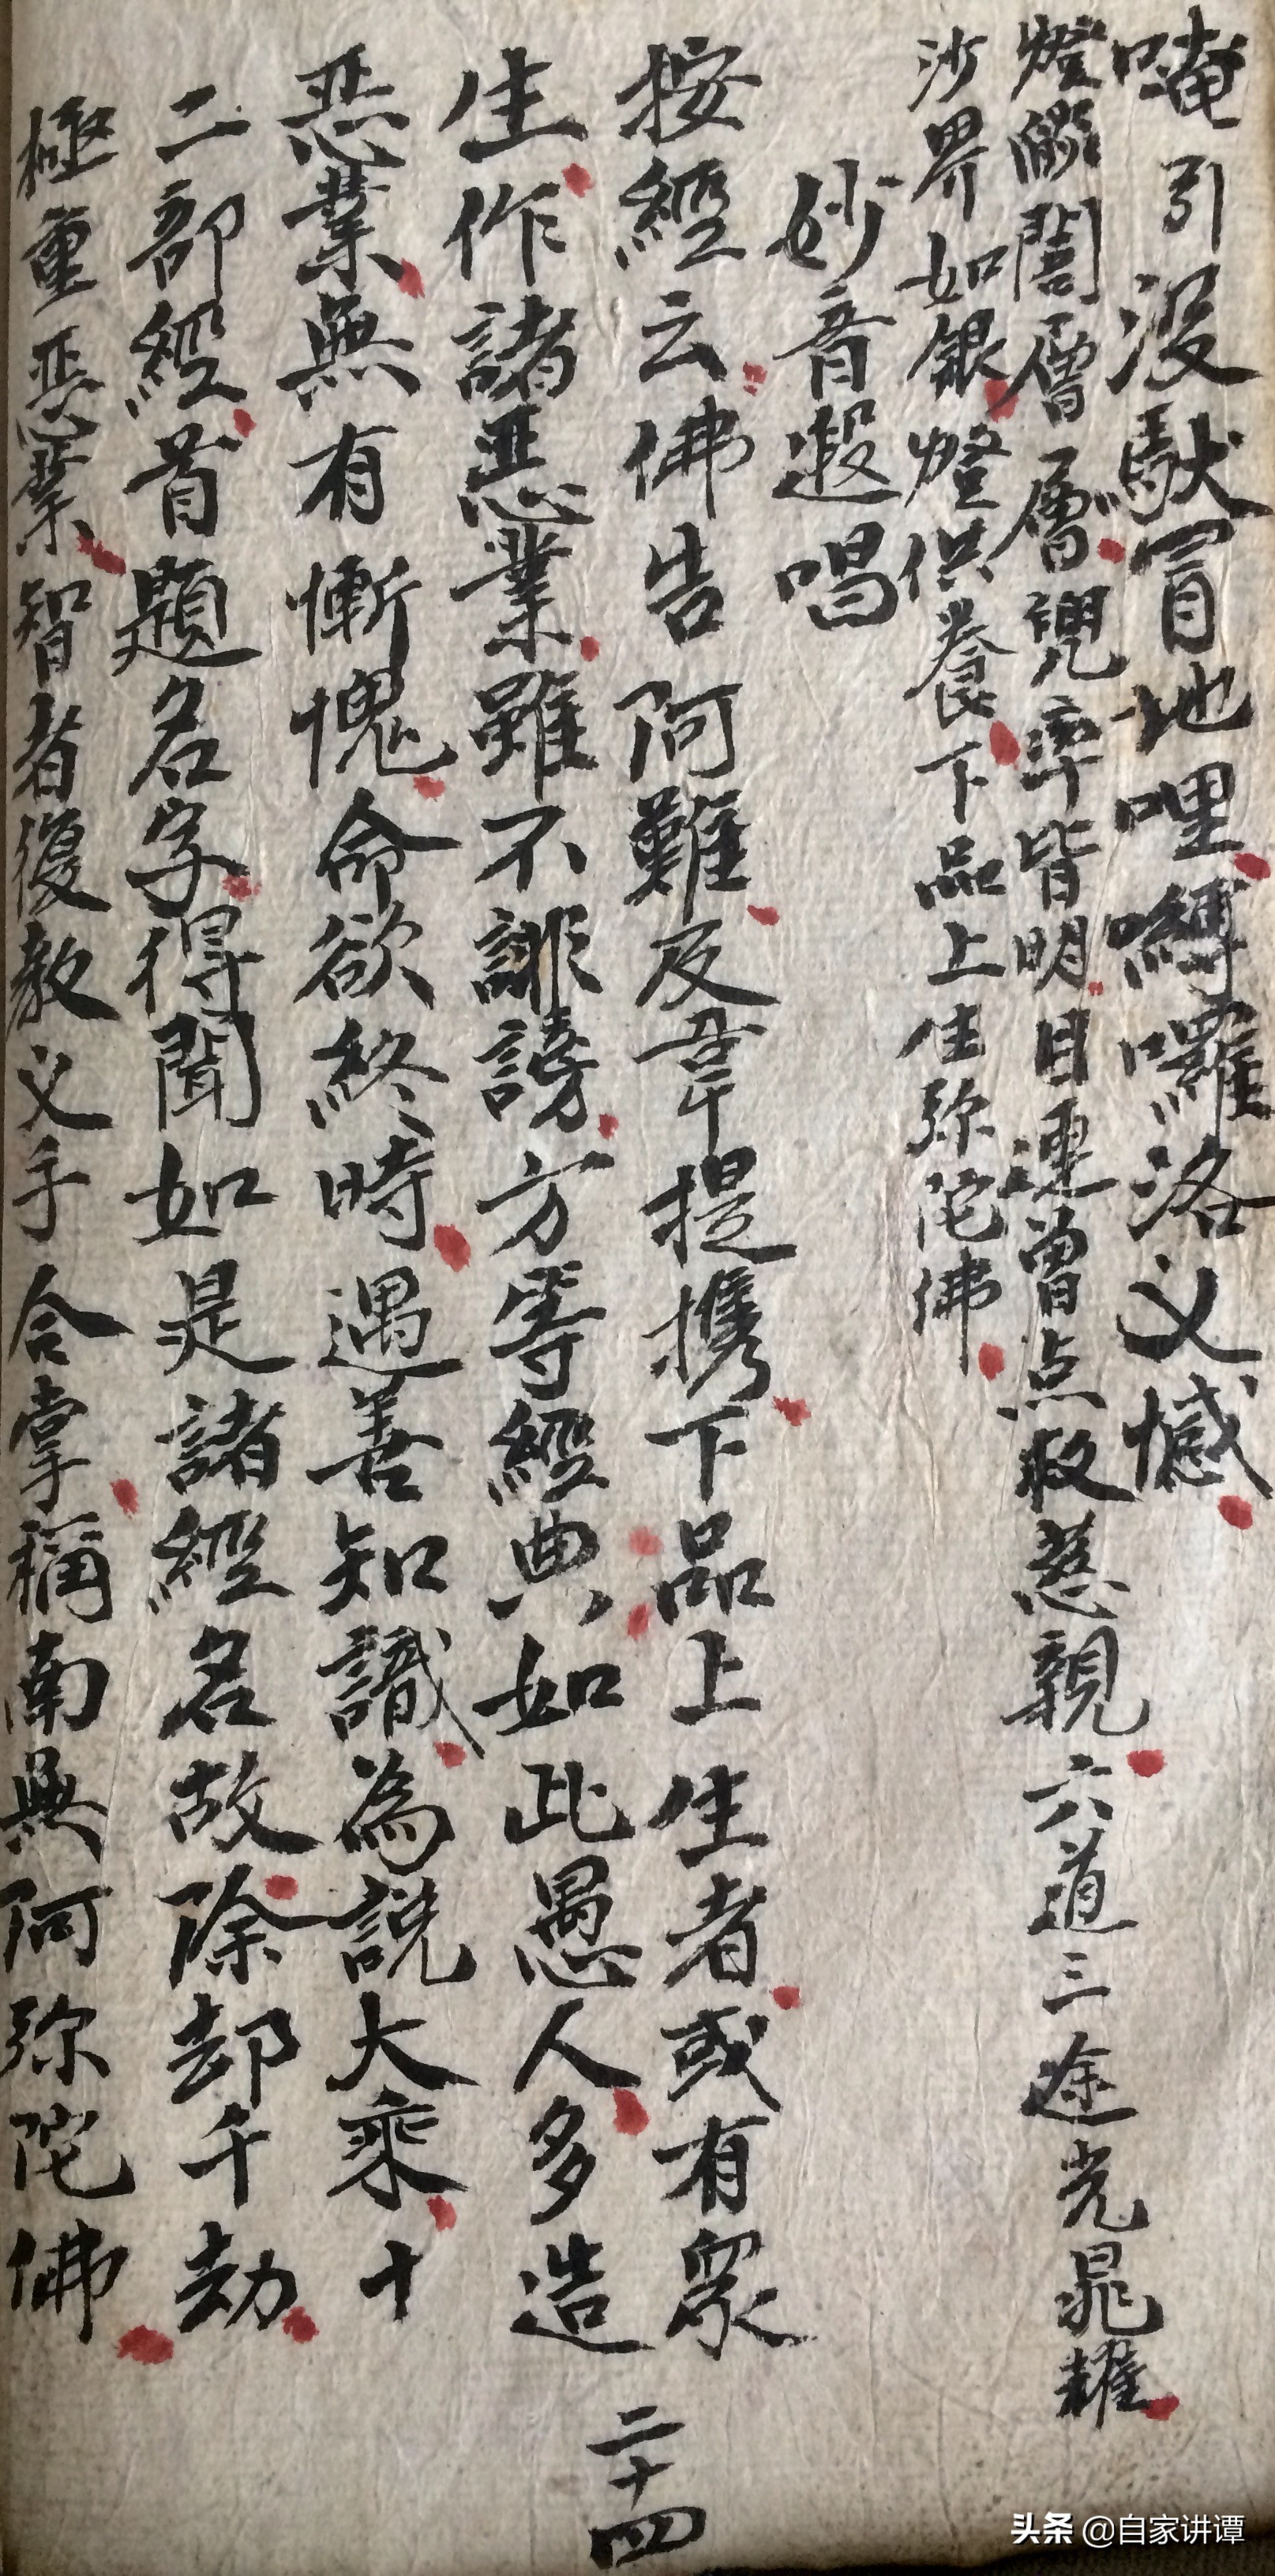 唵引沒馱冐地哩嚩囉洛义憾
燈燃闇層層兜率皆明目連曾点救慈親六道三途光晃耀
沙界如銀燈供養下品上生弥陀佛
妙音遐唱
按經云佛告阿難及韋提携下品上生者或有眾
生作諸惡業雖不誹謗方等經典如此愚人多造
惡業無有慚愧命欲終時遇善知識為説大乘十
二部經首題名字得聞如是諸經名故除却千劫
極重惡業智者復教义手合掌稱南無阿弥陀佛
二十四
头条 @自家讲谭